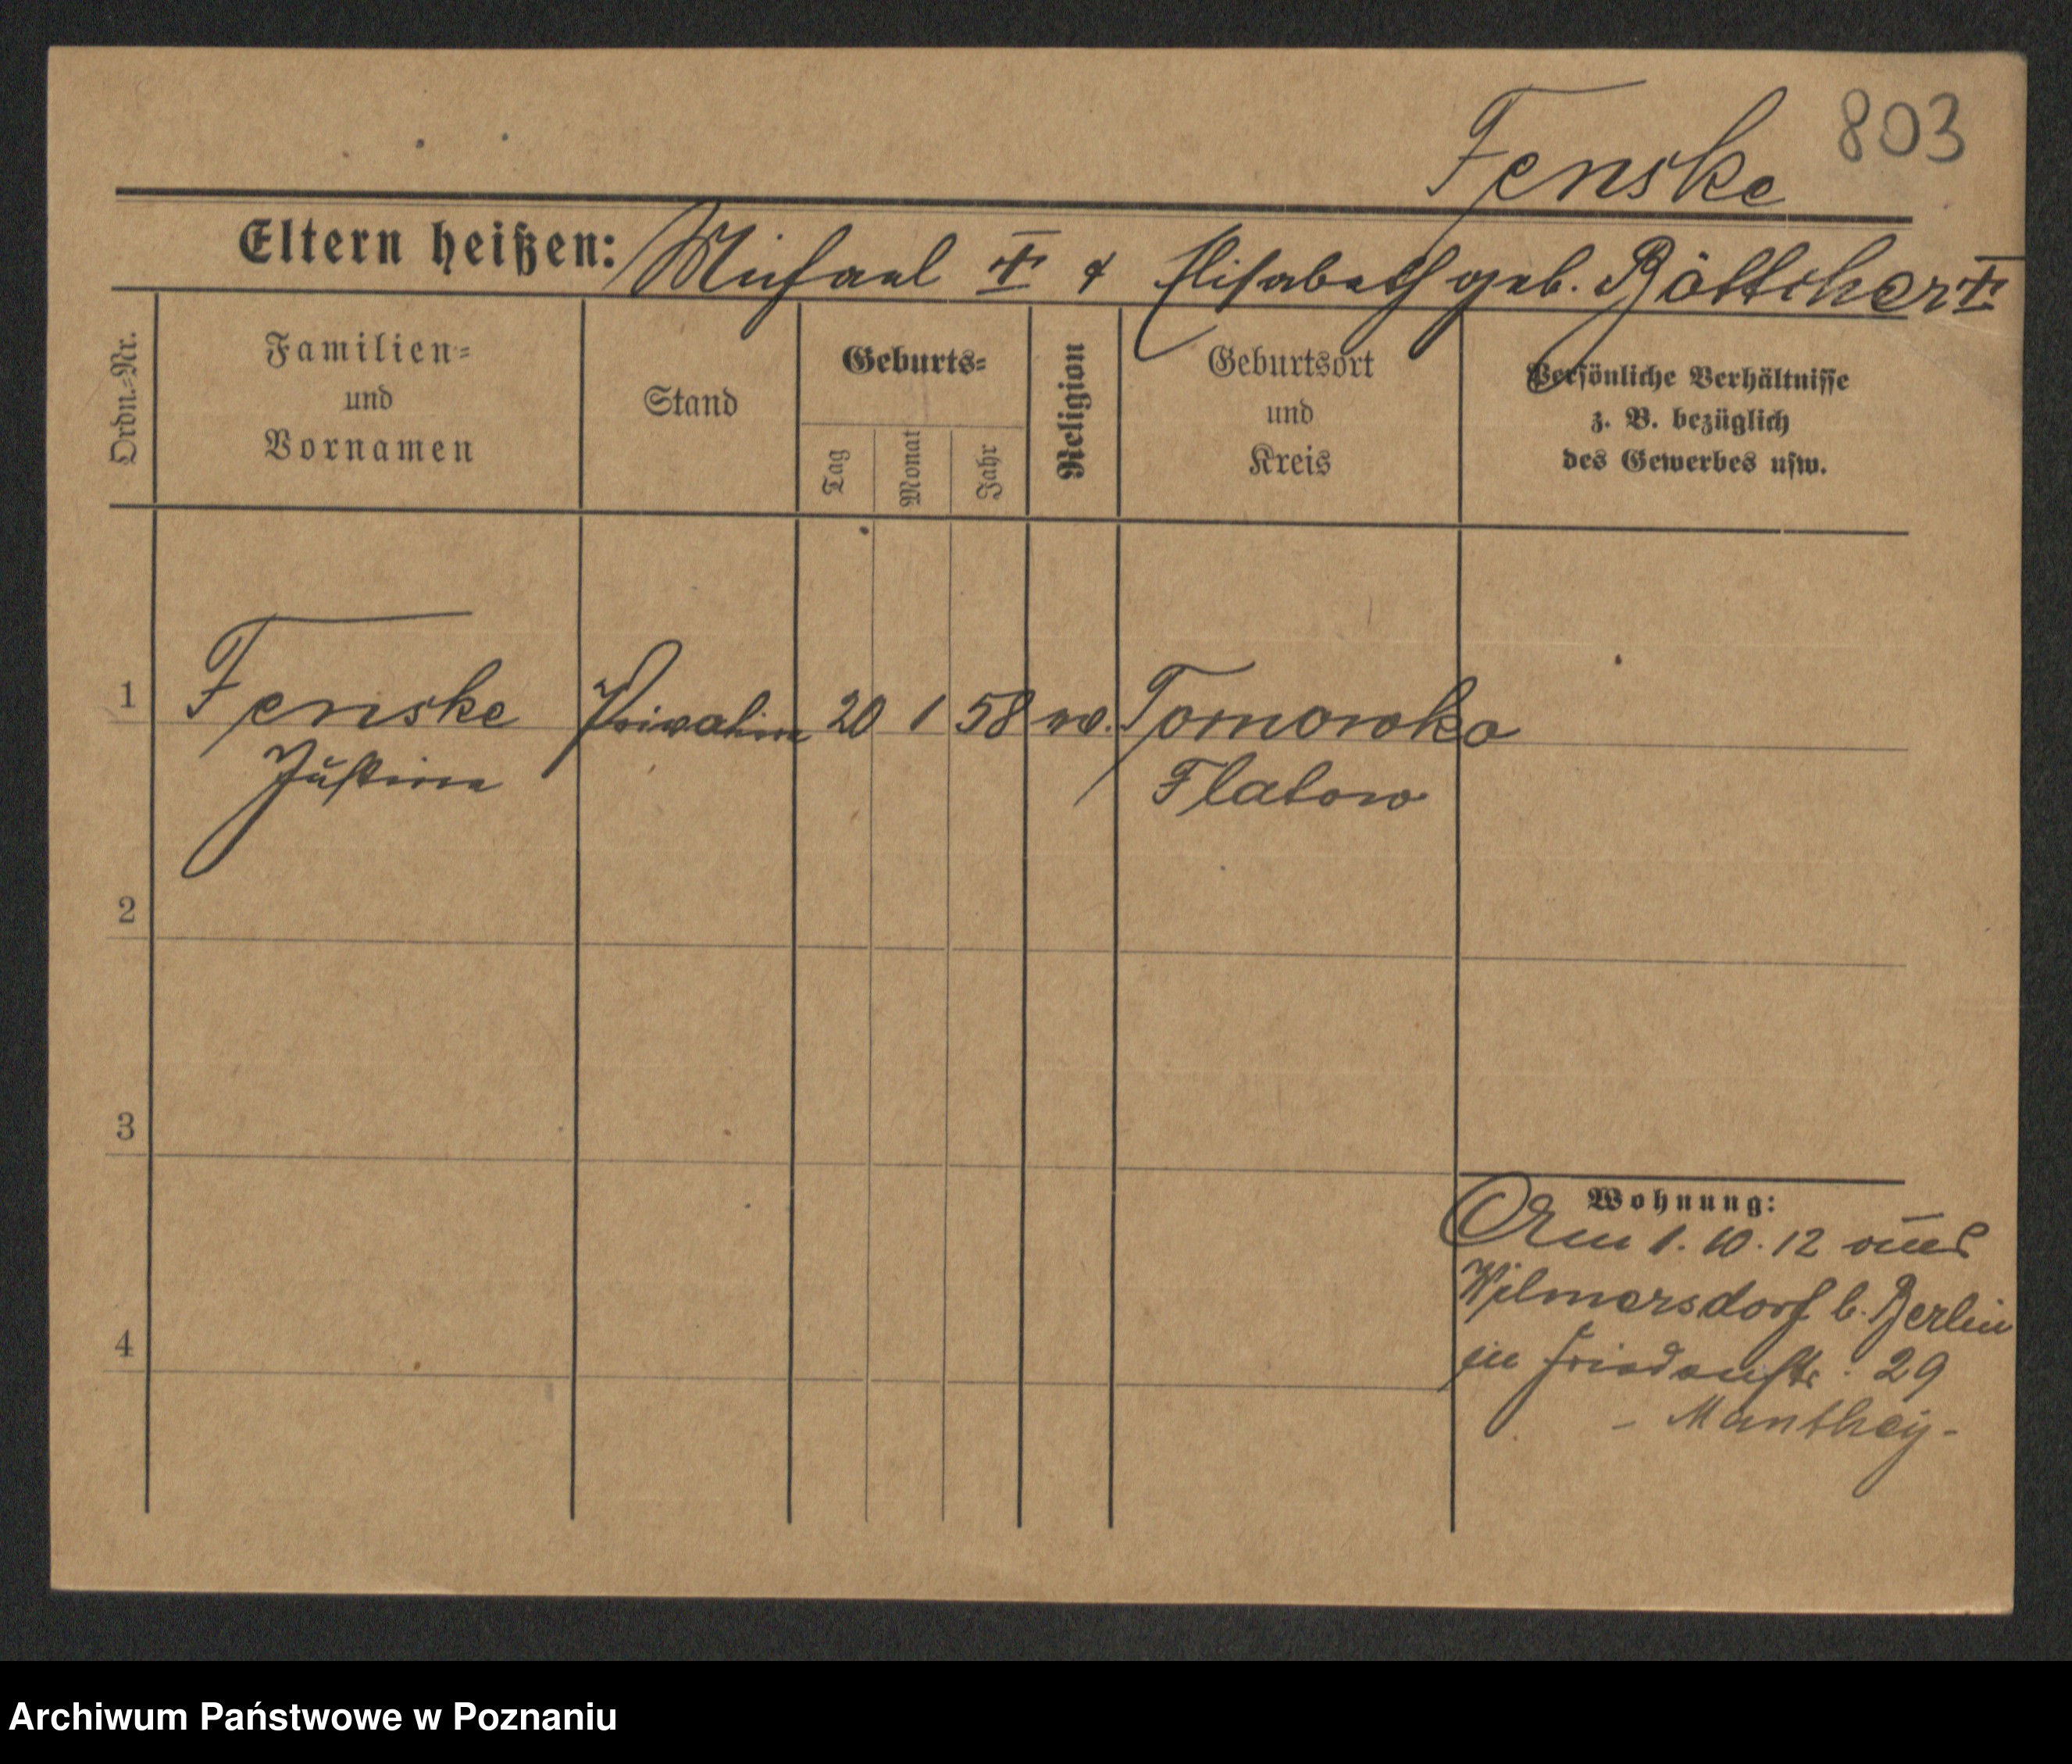 803
Fenske
Eltern heißen: Michael † & Elisabeth geb. Böttcher †
Ordn.-Nr.
Familien-
und
Vornamen
Stand
Geburts-
Tag
Monat
Jahr
Religion
Geburtsort
und
Kreis
Persönliche Verhältnisse
z. B. bezüglich
des Gewerbes usw.
1 Fenske 20 1 58 Tomowko
Justine
Flatow
2
3
4
Wohnung:
Am 1.10.12 aus
Wilmersdorf b. Berlin
in Friedaustr. 29
- Manthey -
Archiwum Państwowe w Poznaniu